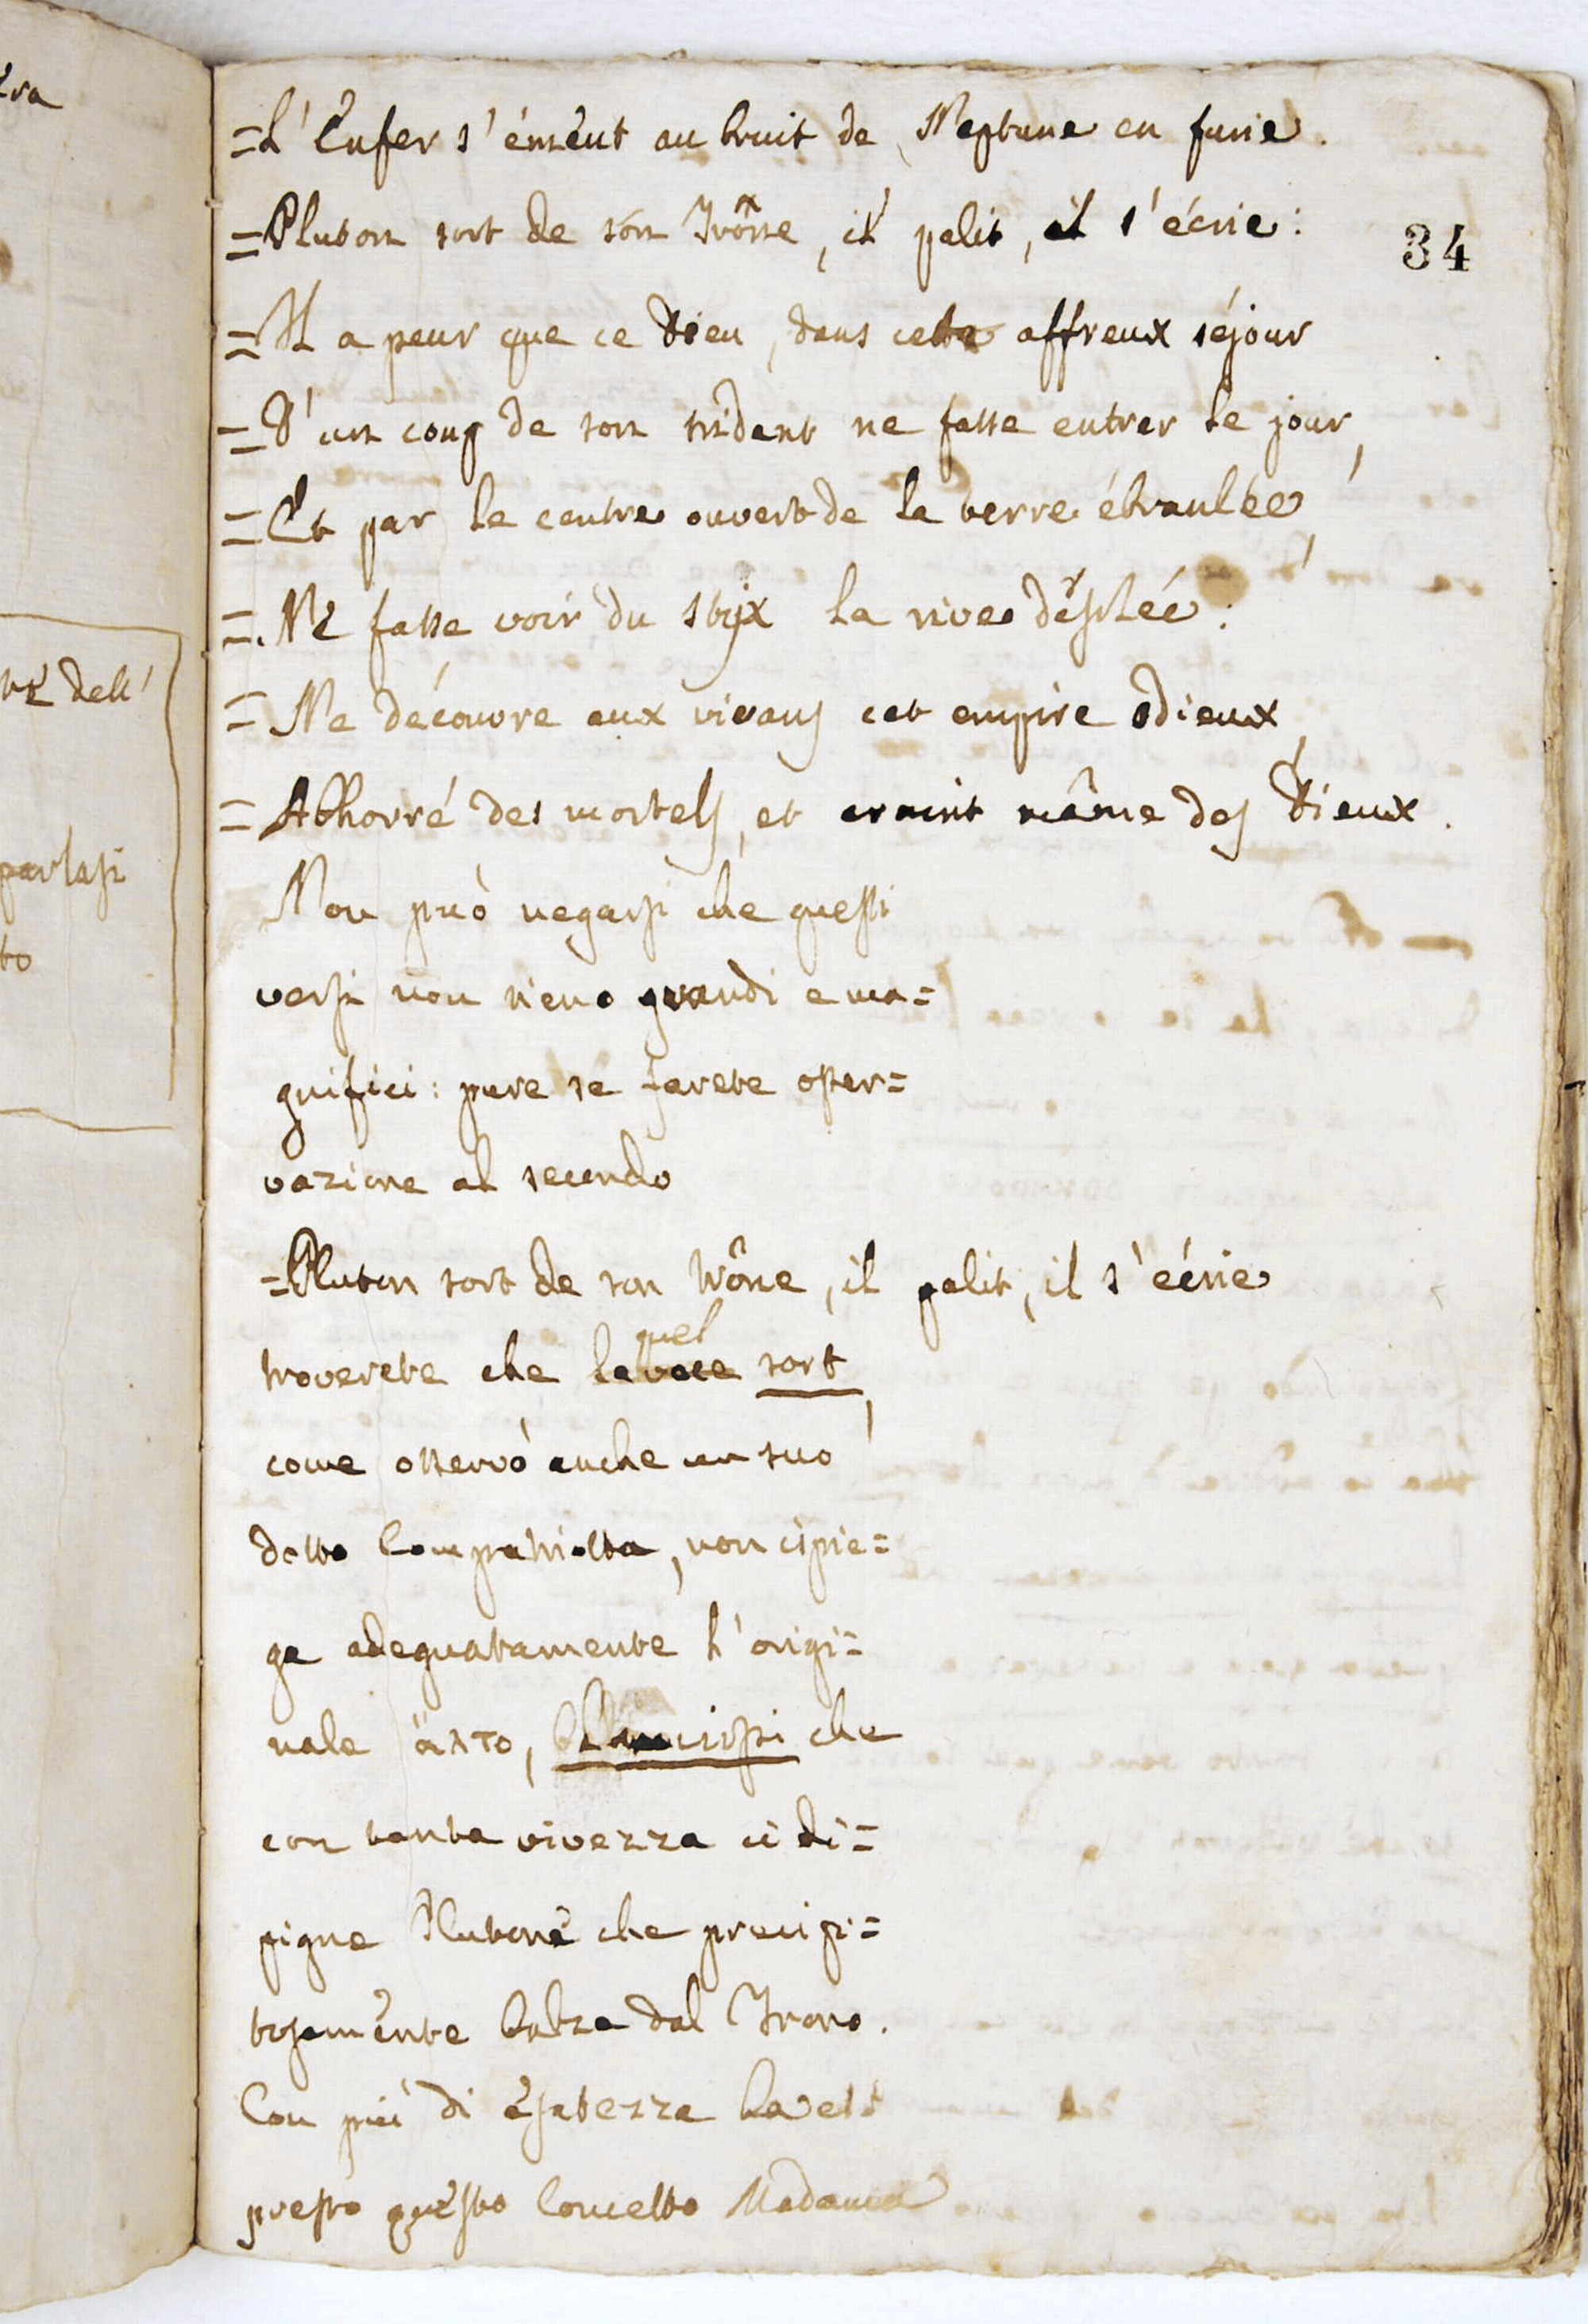 =L'Enfer s'émeut au bruit de Neptune en furie.
=Pluton sort de son Trône, il palit, il s'écrie:
34
=Il a peur que ce Dieu, dans cet affreux séjour
=D'un coup de son trident ne fasse entrer le jour,
=Et par le centre ouvert de la terre ébranlée,
=Ne fasse voir du Stijx la rive désolée:
=Ne découvre aux vivans cet empire odieux,
=Abhorré des mortels, et craint même des Dieux.
Non può negarsi che questi
versi non sieno grandi e ma=
gnifici: pure se farete osser=
vazione al secondo
=Pluton sort de son trône, il palit, il s'écrie
quel
troverete che la voce sort,
come osservò anche un suo
dotto Compatriotta, non ispie=
ga adeguatamente l'origi=
nale ἆλτο, che
con tanta vivezza ci di=
pigne Plutone che precipi=
tosamente balza dal Trono.
Con più di esatezza ha es=
presso questo Concetto Madama
tre dell'
parlasi
to